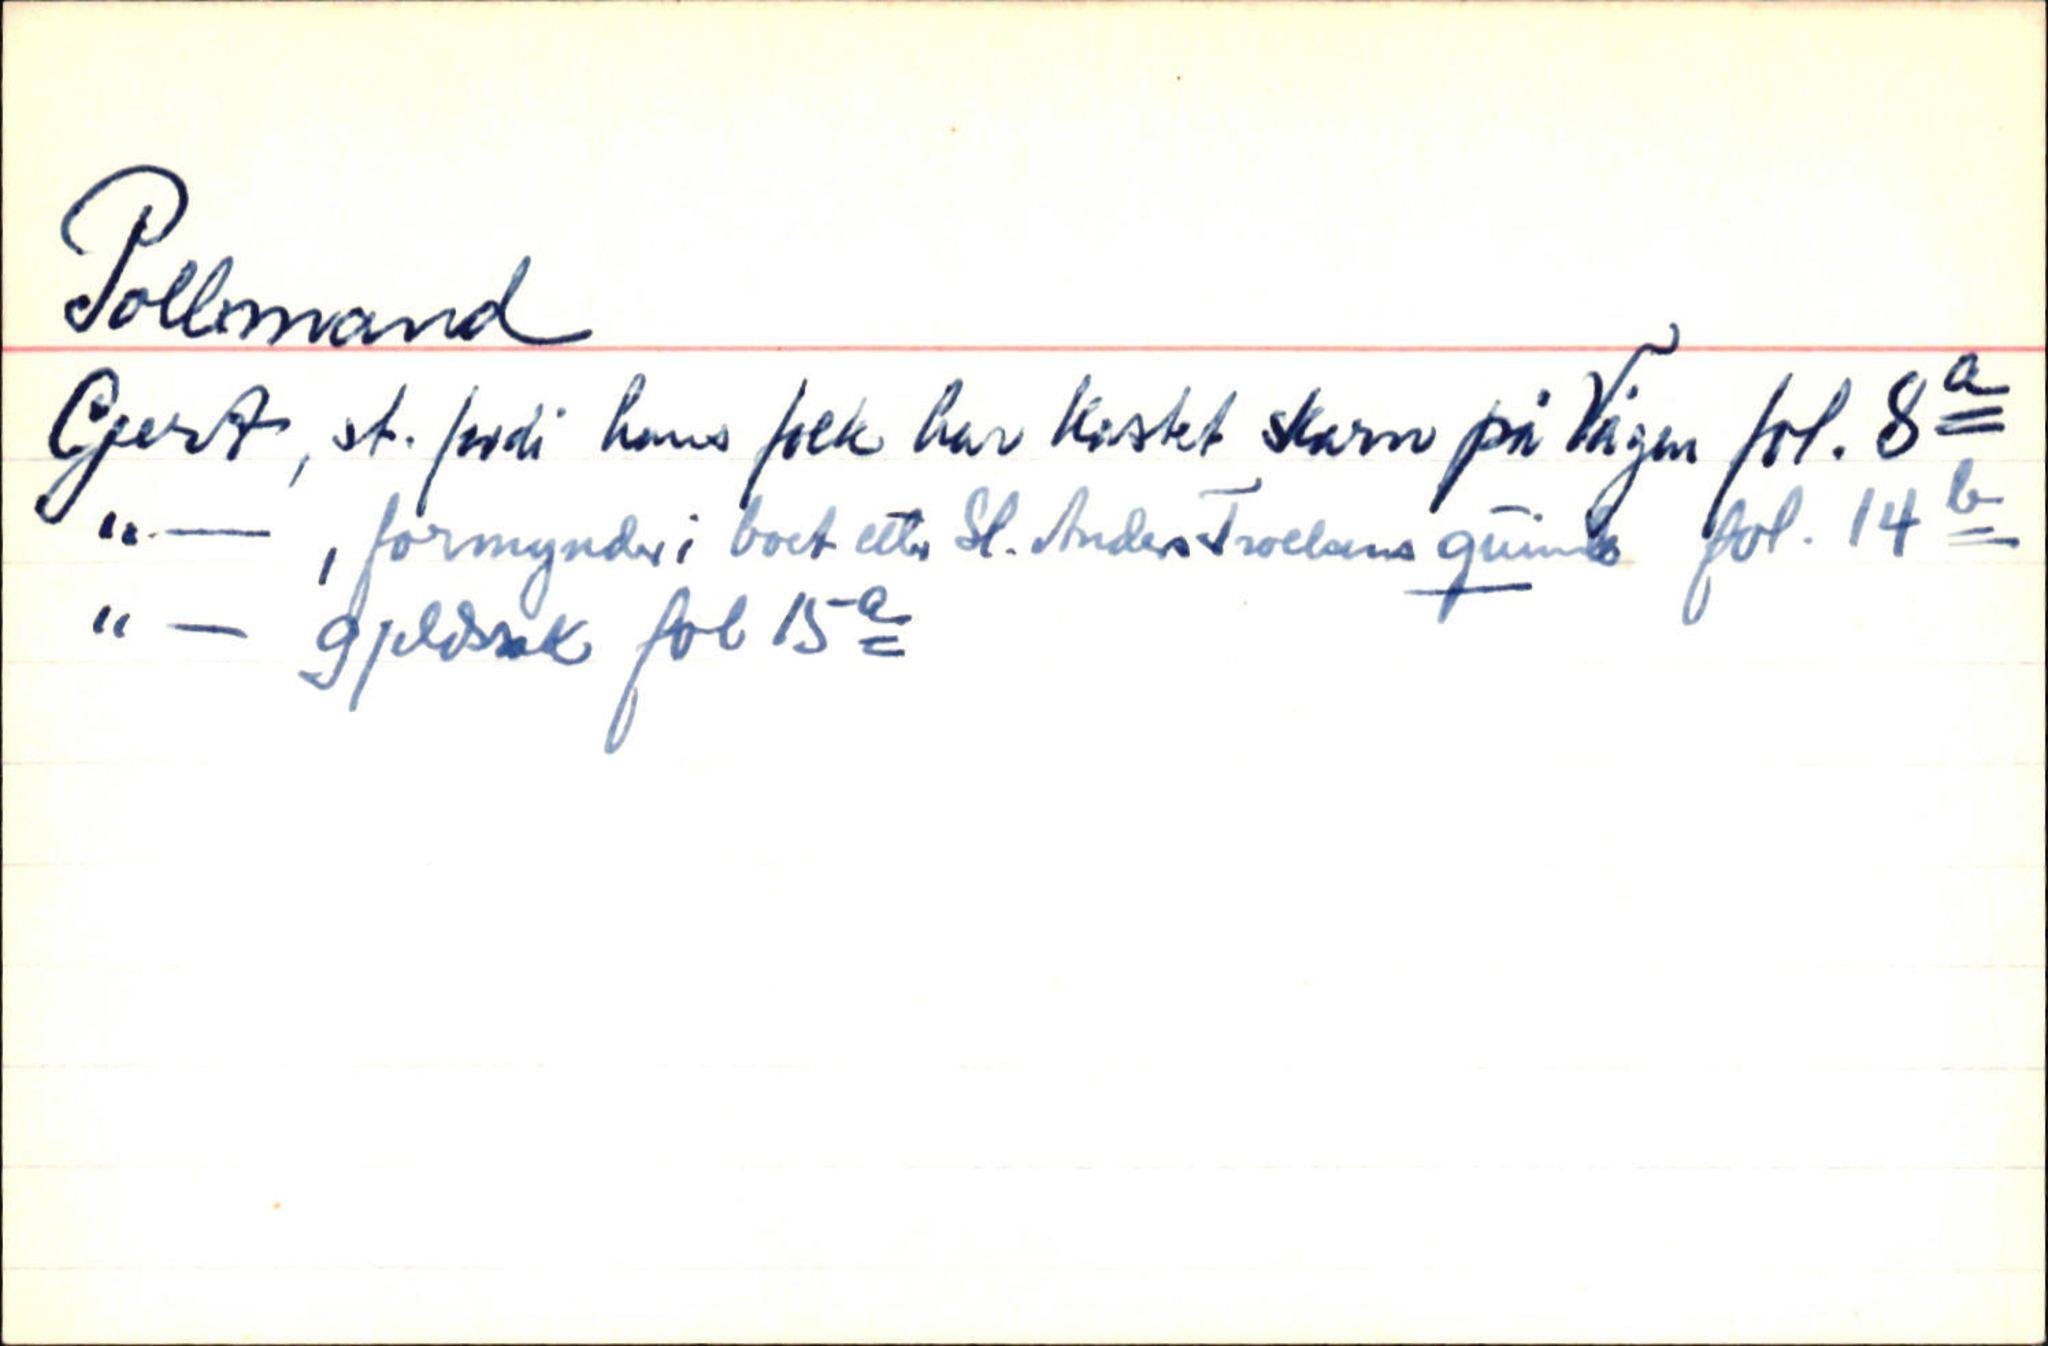 Pollmand
Gjert, st. fordi hans folk har kastet skarn på Vågen fol. 8a
"— , formynder i boet etter Sl. Anders Troelsens quinde fol. 14b
"— gjeldssak fol 15a